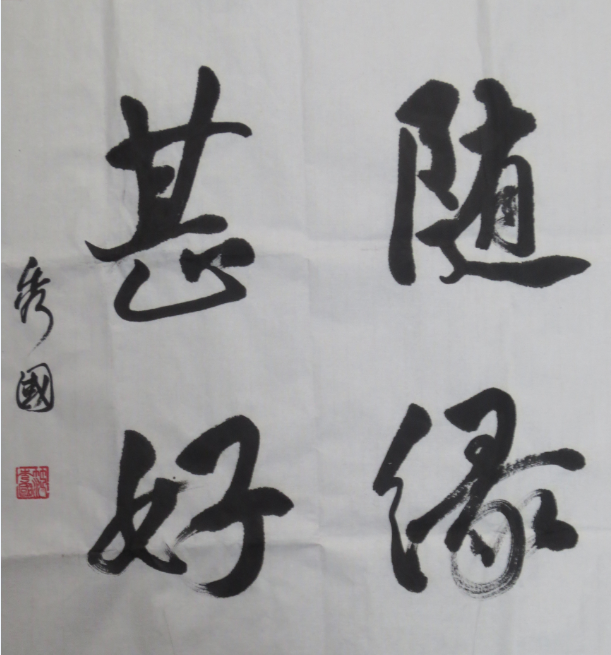 随缘
甚好
秀國